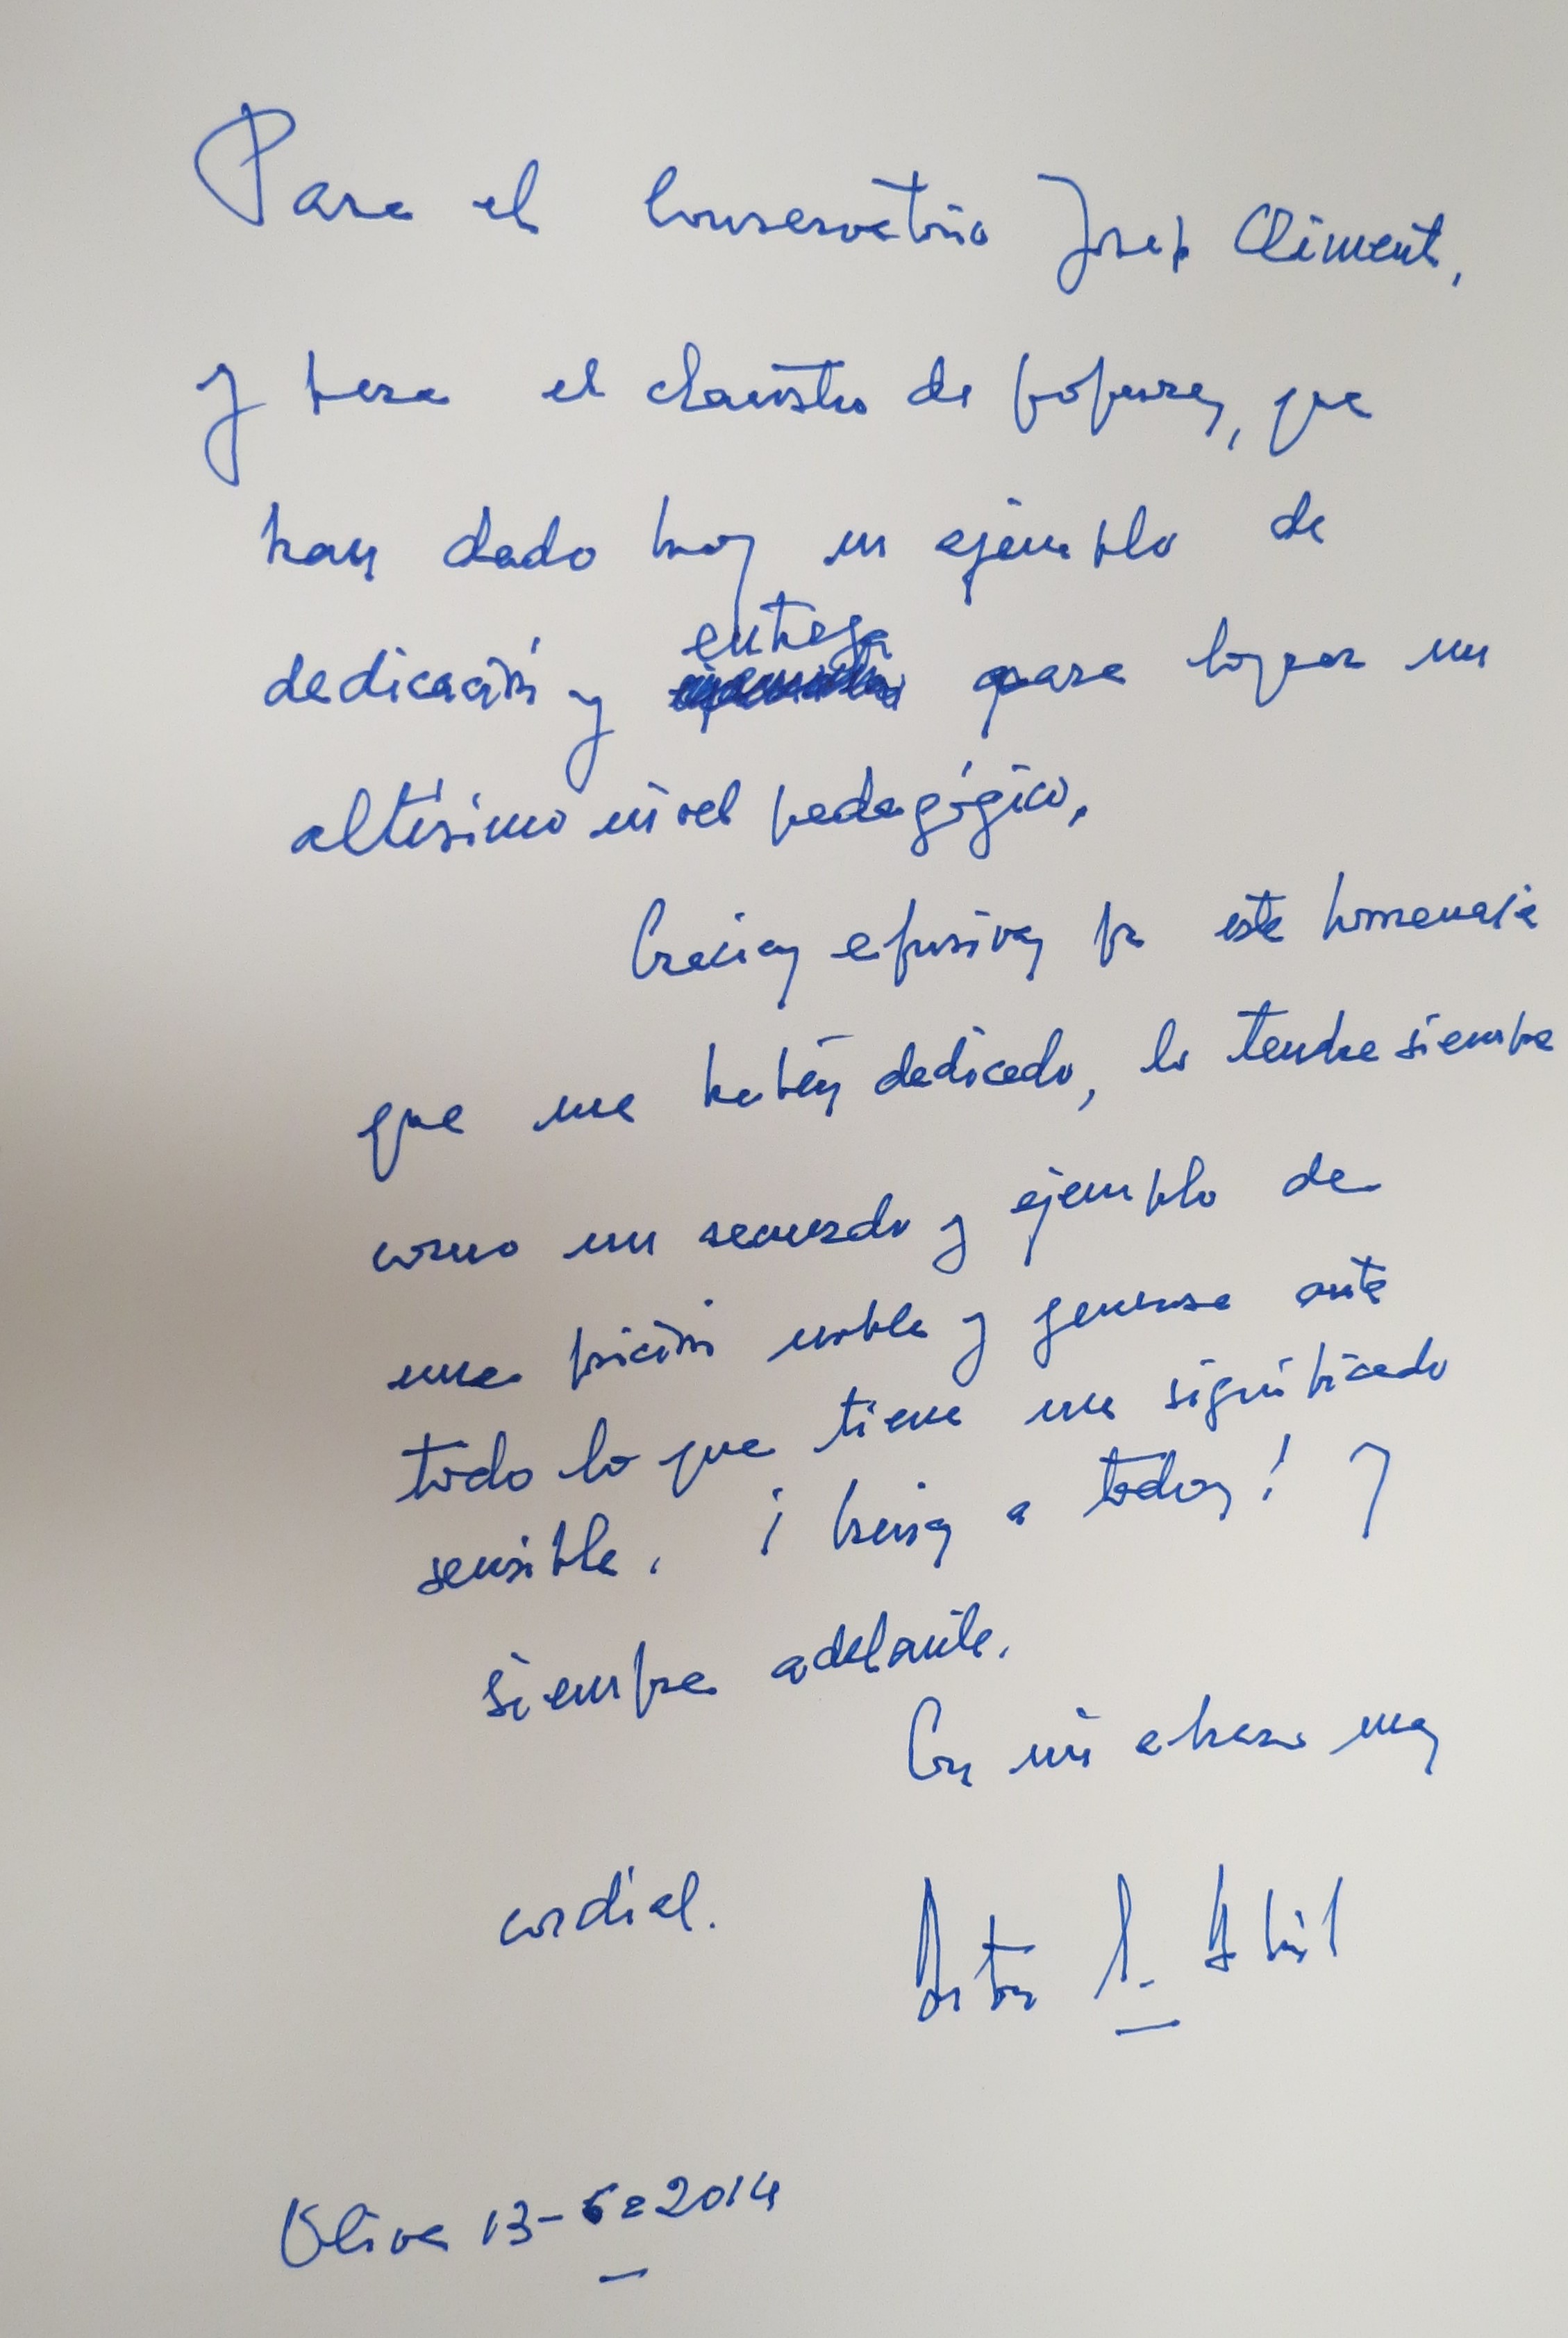 Para el Conservatorio Josep Climent,
y para el claustro de profesores, que
han dado hoy un ejemplo de
dedicación y entrega para lograr un
altísimo nivel pedagógico.
Gracias efusivas por este homenaje
que me habéis dedicado, lo tendre siempre
como un recuerdo y ejemplo de
una posición noble y generosa ante
todo lo que tiene un significado
sensible. ¡Gracias a todos! Y
siempre adelante.
Con mi abrazo muy
cordial.
Oliva 13-6=2014